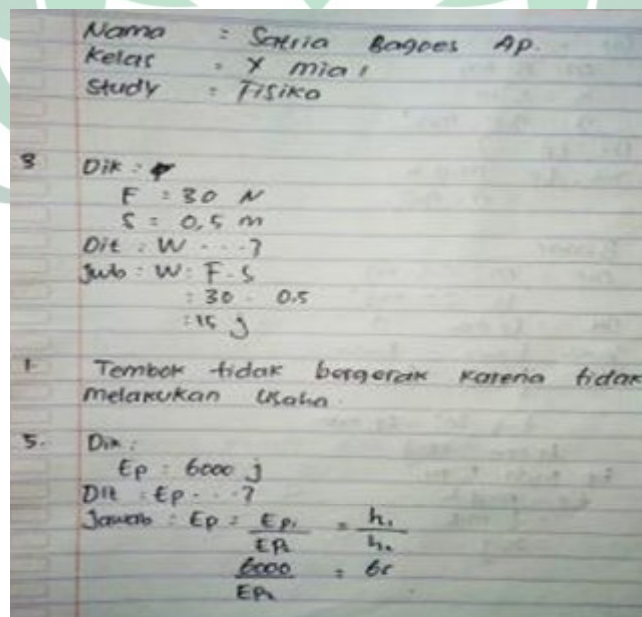 Nama : Satria Bagoes Ap.
Kelas : X mia 1
Study : Fisika
3 Dik :
F = 30 N
S = 0,5 m
Dit : W . . . ?
Jwb : W : F . S
: 30 . 0.5
: 15 j
1. Tembok tidak bergerak karena tidak
melakukan usaha.
5. Dik :
Ep : 6000 j
Dit : Ep . . . ?
Jawab : Ep : Ep₁ / Ep₂ = h₁ / h₂
6000 / Ep₂ =